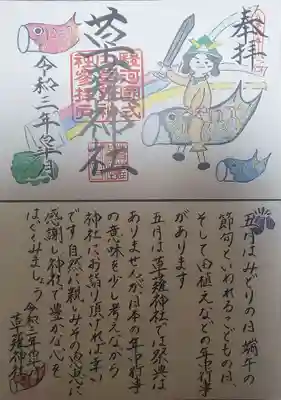 奉拝
草薙神社
令和三年五月
五月はみどりの日 端午の
節句といわれるこどもの日
そして田植えなどの年中行事
があります
五月は草薙神社では祭典は
ありませんが日本の年中行事
の意味を少し考えながら
神社にお詣り頂ければ幸い
です 自然に親しみその恩恵に
感謝し神社で豊かな心を
はぐくみましょう
令和三年五月
草薙神社